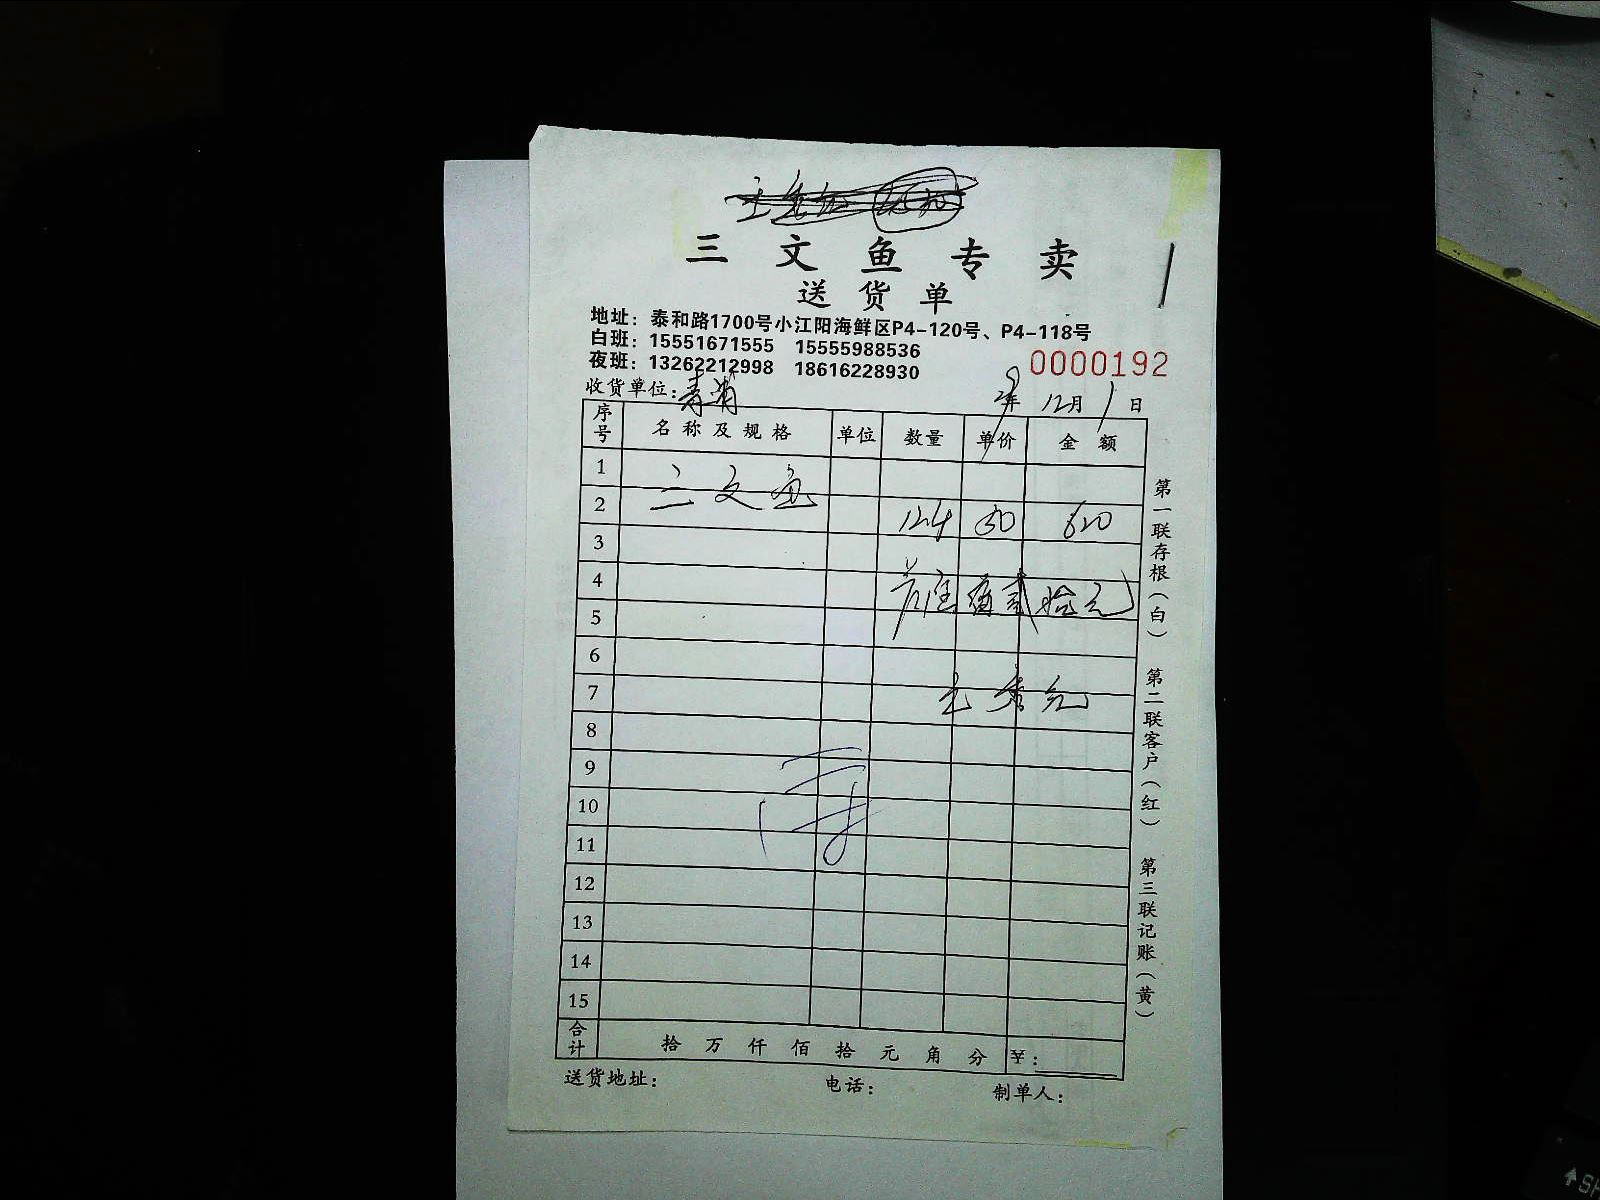 三文鱼专卖
送货单
地址：泰和路1700号小江阳海鲜区P4-120号、P4-118号
白班：15551671555 15555988536
夜班：13262212998 18616228930
0000192
收货单位：青浦 年 12月1日
序号 名称及规格 单位 数量 单价 金额
1 三文鱼
2 124 50 620
3
4 佰贰拾元
5
6
7
8
9
10
11
12
13
14
15
合计 拾万仟佰拾元角分 ¥：
送货地址： 电话： 制单人：
第一联存根（白） 第二联客户（红） 第三联记账（黄）